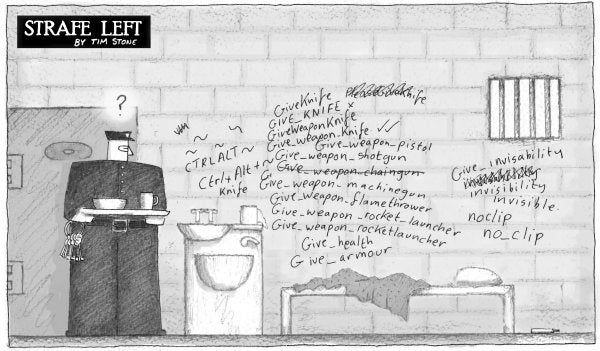 STRAFE LEFT
BY TIM STONE
?
CTRLALT~
Ctrl+Alt+~
Knife
GiveKnife
GiVE_KNIFE x
GiveWeaponKnife
Give_weapon_Knife ✓✓
Give_weapon_pistol
Give_weapon_shotgun
Gi Give_weapon_chaingun
Give_weapon_machinegun
Give_weapon_flamethrower
Give_weapon_rocket_launcher
Give_weapon_rocketlauncher
Give_health
Give_armour
Give_invisability
invisibility
invisible.
noclip
no_clip